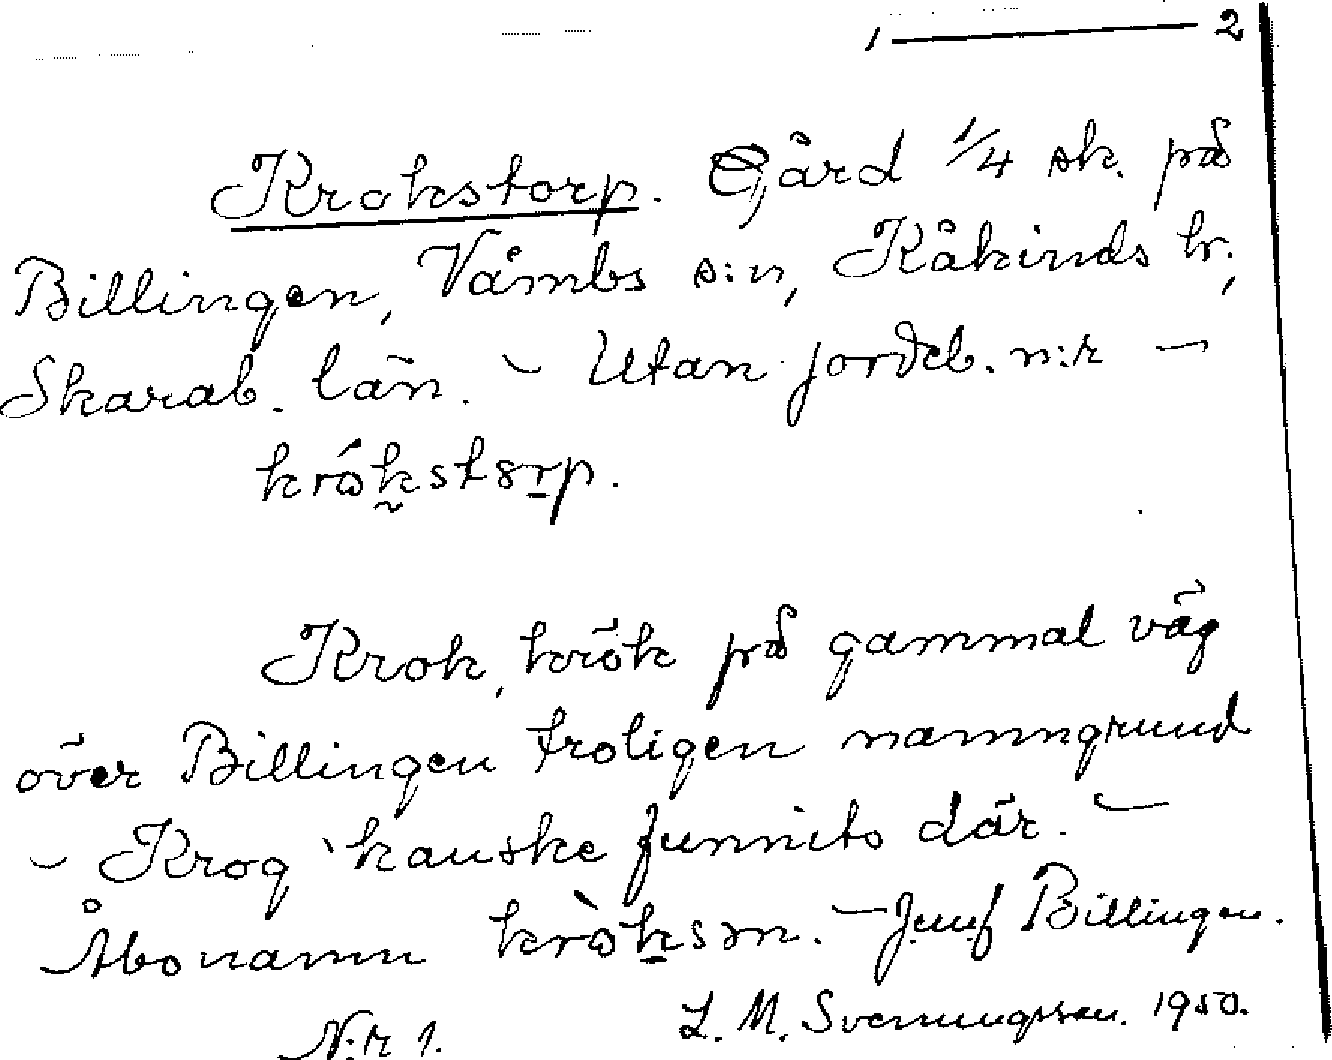 1 — 2
Krokstorp. Gård 1/4 sk. på
Billingen, Våmbs s:n, Kåkinds hr.,
Skarab. län. – Utan jordeb. n:r –
krókstørp.
Krok, krök på gammal väg
över Billingen troligen namngrund
– Krog kanske funnits där. –
Åbonamn kròksm. – Jmf Billingen.
N:r 1. L. M. Svenungsson. 1950.